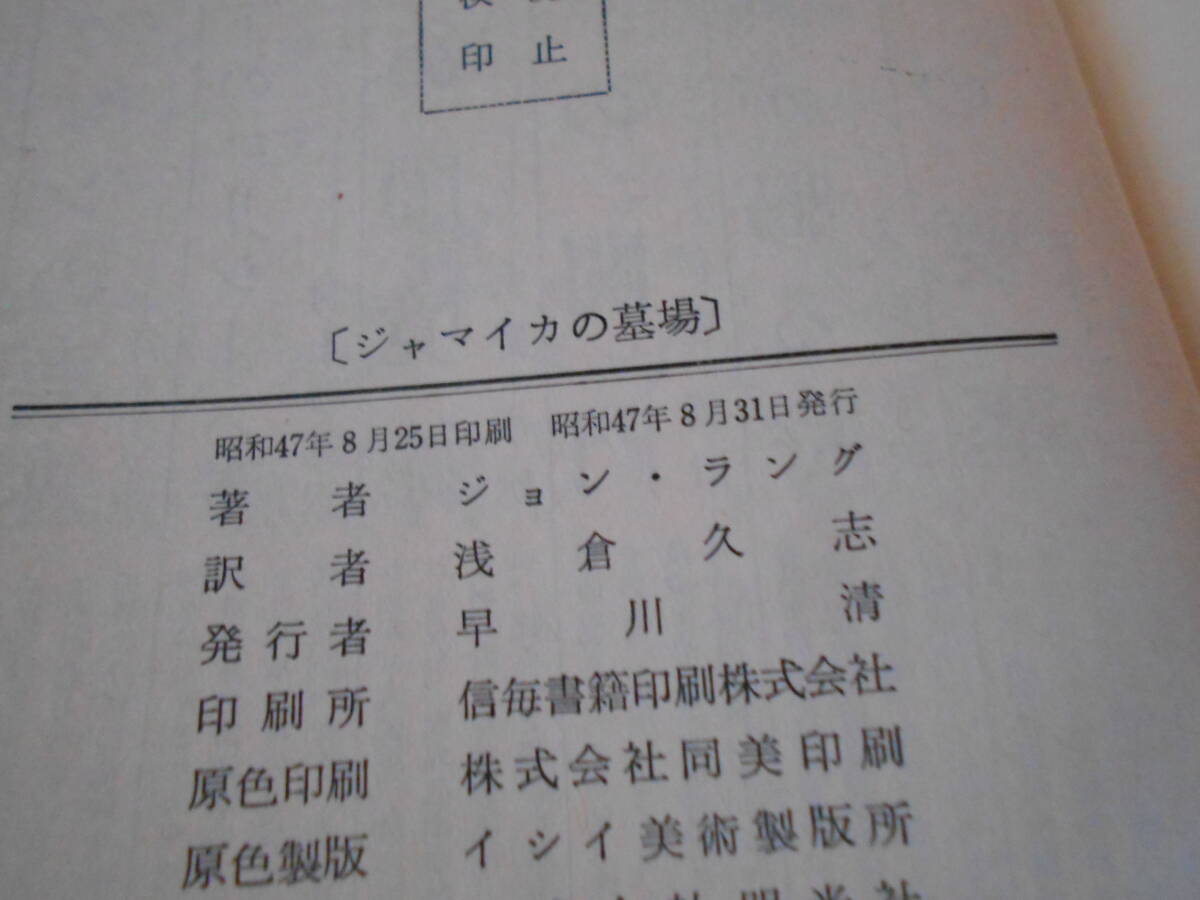 印止
〔ジャマイカの墓場〕
昭和47年8月25日印刷 昭和47年8月31日発行
著者 ジョン・ラング
訳者 浅倉久志
発行者 早川清
印刷所 信毎書籍印刷株式会社
原色印刷 株式会社同美印刷
原色製版 イシイ美術製版所